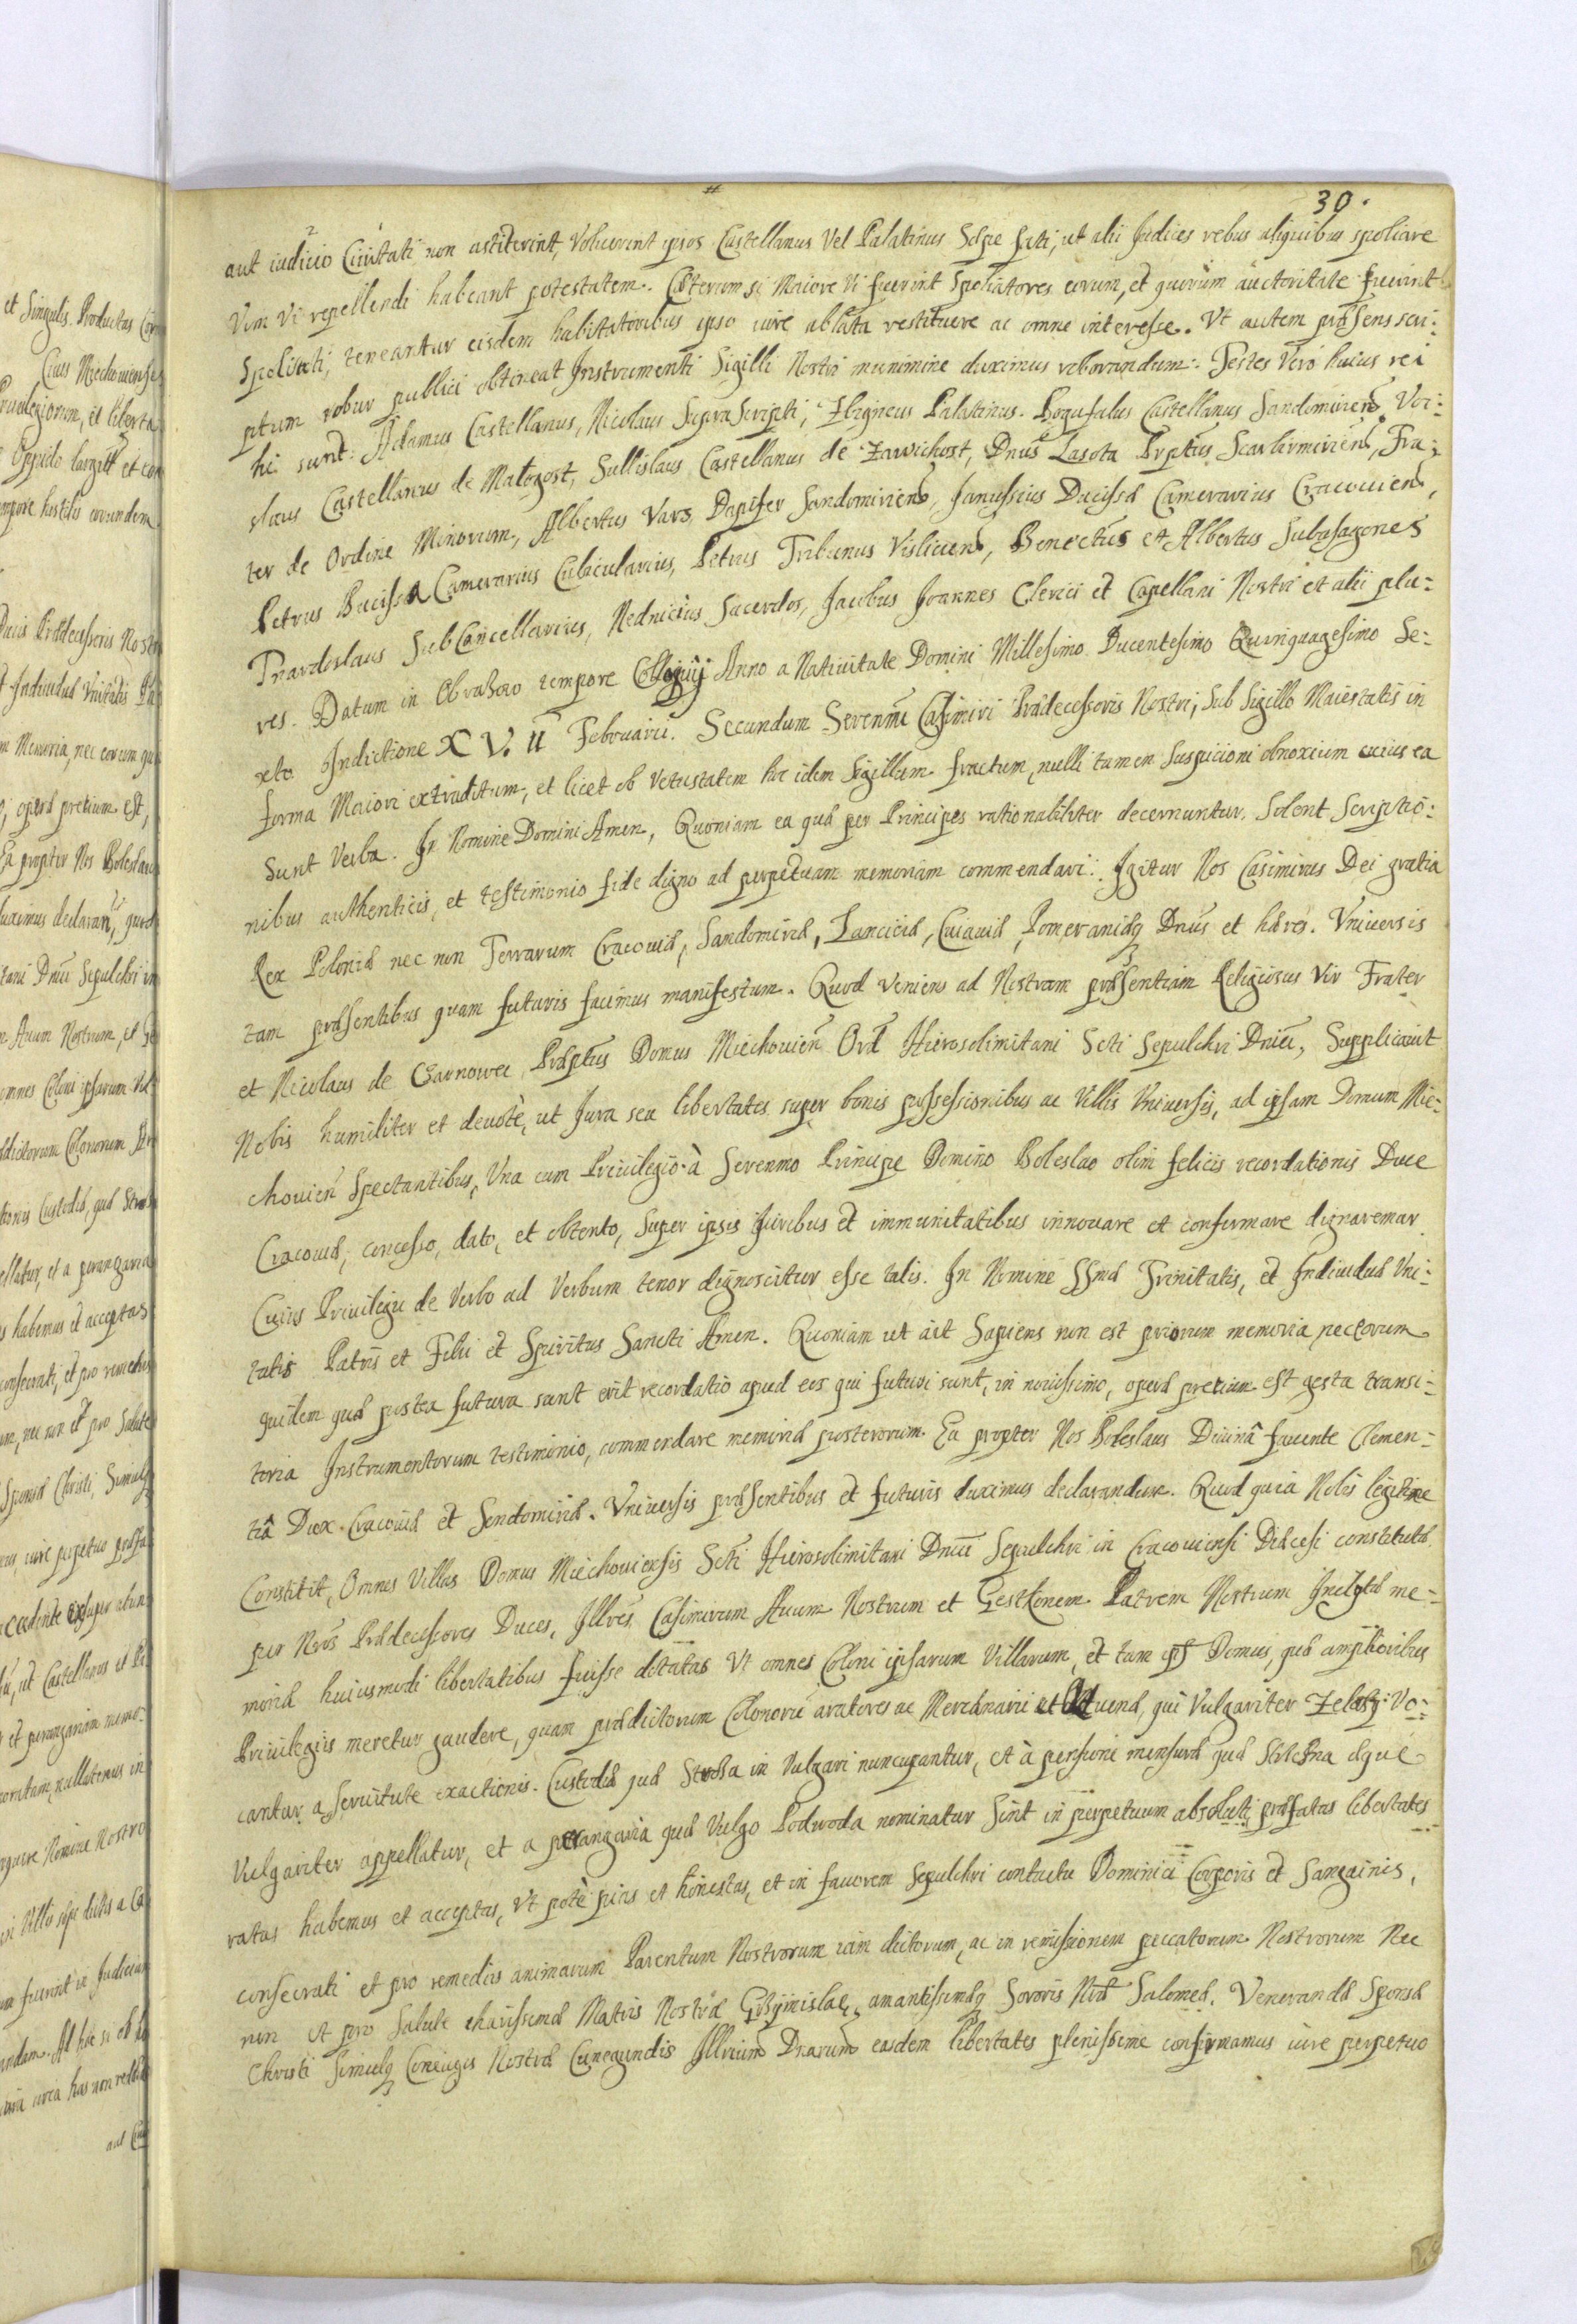 30.
aut iudicio Ciuitati non astiterint, Voluerint ipsos Castellanus Vel Palatinus Sæpe fati, ut alii Iudices rebus aliquibus spoliare
Vim Vi repellendi habeant potestatem. Cæterum si Maiore Vi fuerint Spoliatores eorum, et quorum auctoritate fuerint
Spoliati, teneantur eisdem habitatoribus ipso iure ablata restituere ac omne interesse. Vt autem præsens scri:
ptum robur publici obtineat Instrumenti Sigilli Nostri munimine duximus roborandum: Testes Vero huius rei
hi sunt: Adamus Castellanus, Nicolaus Supra Scripti, Zbigneus Palatinus. Bogufalus Castellanus Sandomirien, Voi:
slaus Castellanus de Małogost, Sullislaus Castellanus de Zawichost, Dnus Lasota Prptus Scarbirmirien, Fra:
ter de Ordine Minorum, Albertus Vars, Dapifer Sandomirien, Janussius Ducissæ Camerarius Cracouien,
Petrus Ducissæ Camerarius Cubicularius, Petrus Tribunus Vislicien, Benectus et Albertus Subagazones
Twardoslaus SubCancellarius, Nednicius Sacerdos, Jacobus Joannes Clerici et Capellani Nostri et alii plu:
res. Datum in Obrahow tempore Colloquij Anno a Natiuitate Domini Millesimo Ducentesimo Quinquagesimo Se:
xto Indictione X V. II Februarii. Secundum Serenmi Casimiri Prædecessoris Nostri, Sub Sigillo Maiestatis in
forma Maiori extraditum, et licet ob Vetustatem hic idem Sigillum fractum, nulli tamen Suspicioni obnoxium cuius ea
Sunt Verba. In Nomine Domini Amen, Quoniam ea quæ per Principes rationabiliter decernuntur. Solent Scriptio:
nibus authenticis, et testimonio fide digno ad perpetuam memoriam commendari: Igitur Nos Casimirus Dei gratia
Rex Poloniæ nec non Terrarum Cracouiæ, Sandomiriæ, Lanciciæ, Cuiauiæ, Pomeraniæq Dnus et hæres. Vniuersis
tam præsentibus quam futuris facimus manifestum. Quod Veniens ad Nostram præsentiam Religiosus Vir Frater
et Nicolaus de Czarnowec Præptus Domus Miechouien Ord Hierosolimitani Scti Sepulchri Dnici, Supplicauit
Nobis humiliter et deuotè, ut Jura seu libertates super bonis possessionibus ac Villis Vniuersis, ad ipsam Domum Mie:
chouien Spectantibus, Vna cum Priuilegio à Serenmo Principe Domino Boleslao olim felicis recordationis Duce
Cracouiæ, concesso, dato, et obtento, Super ipsis Juribus et immunitatibus innouare et confirmare dignaremur.
Cuius Priuilegii de Verbo ad Verbum tenor dignoscitur esse talis. In Nomine SSmæ Trinitatis, et Indiuiduæ Vni:
tatis Patris et Filii et Spiritus Sancti Amen. Quoniam ut ait Sapiens non est priorum memoria nec eorum
quidem quæ postea futura sunt erit recordatio apud eos qui futuri sunt, in nouissimo, operæ pretium est gesta transi:
toria Instrumentorum testimonio, commendare memoriæ posterorum. Ea propter Nos Boleslaus Diuinâ fauente Clemen:
tiâ Dux Cracouiæ et Sendomiriæ. Vniuersis præsentibus et futuris duximus declarandum. Quod quia Nobis legitime
Constitit, Omnes Villas Domus Miechouiensis Scti Hierosolimitani Dnici Sepulchri in Cracouiensi Diæcesi constitutæ
per Nros Prædecessores Duces, Illres, Casimirum Auum Nostrum et Lestkonem Patrem Nostrum Inclytæ me:
moriæ huiusmodi libertatibus fuisse dotatas Vt omnes Coloni ipsarum Villarum, et tam ips Domus, quæ amplioribus
Priuilegiis meretur gaudere, quam prædictorum Colonorū aratores ac Mercænarii et uenæ, qui Vulgariter Zelasy Vo:
cantur, a seruitute exactionis. Custodiæ quæ Stroża in Vulgari nuncupantur, et à pensione mensuræ quæ æque
Vulgariter appellatur, et a perangaria quæ Vulgo Podwoda nominatur Sint in perpetuum absoluti, præfatas libertates
ratas habemus et acceptas, Vt potè pias et honestas, et in fauorem Sepulchri contactu Dominici Corporis et Sanguinis,
consecrati et pro remediis animarum Parentum Nostrorum iam dictorum, ac in remissionem peccatorum Nostrorum Nec
non et pro Salute charissimæ Matris Nostræ Grzymislaę, amantissimæq Sororis Nræ Salomeæ. Venerandæ Sponsæ
Christi Simulq Coniugis Nostræ Cunegundis Illrium Dnarum easdem libertates plenissime confirmamus iure perpetuo